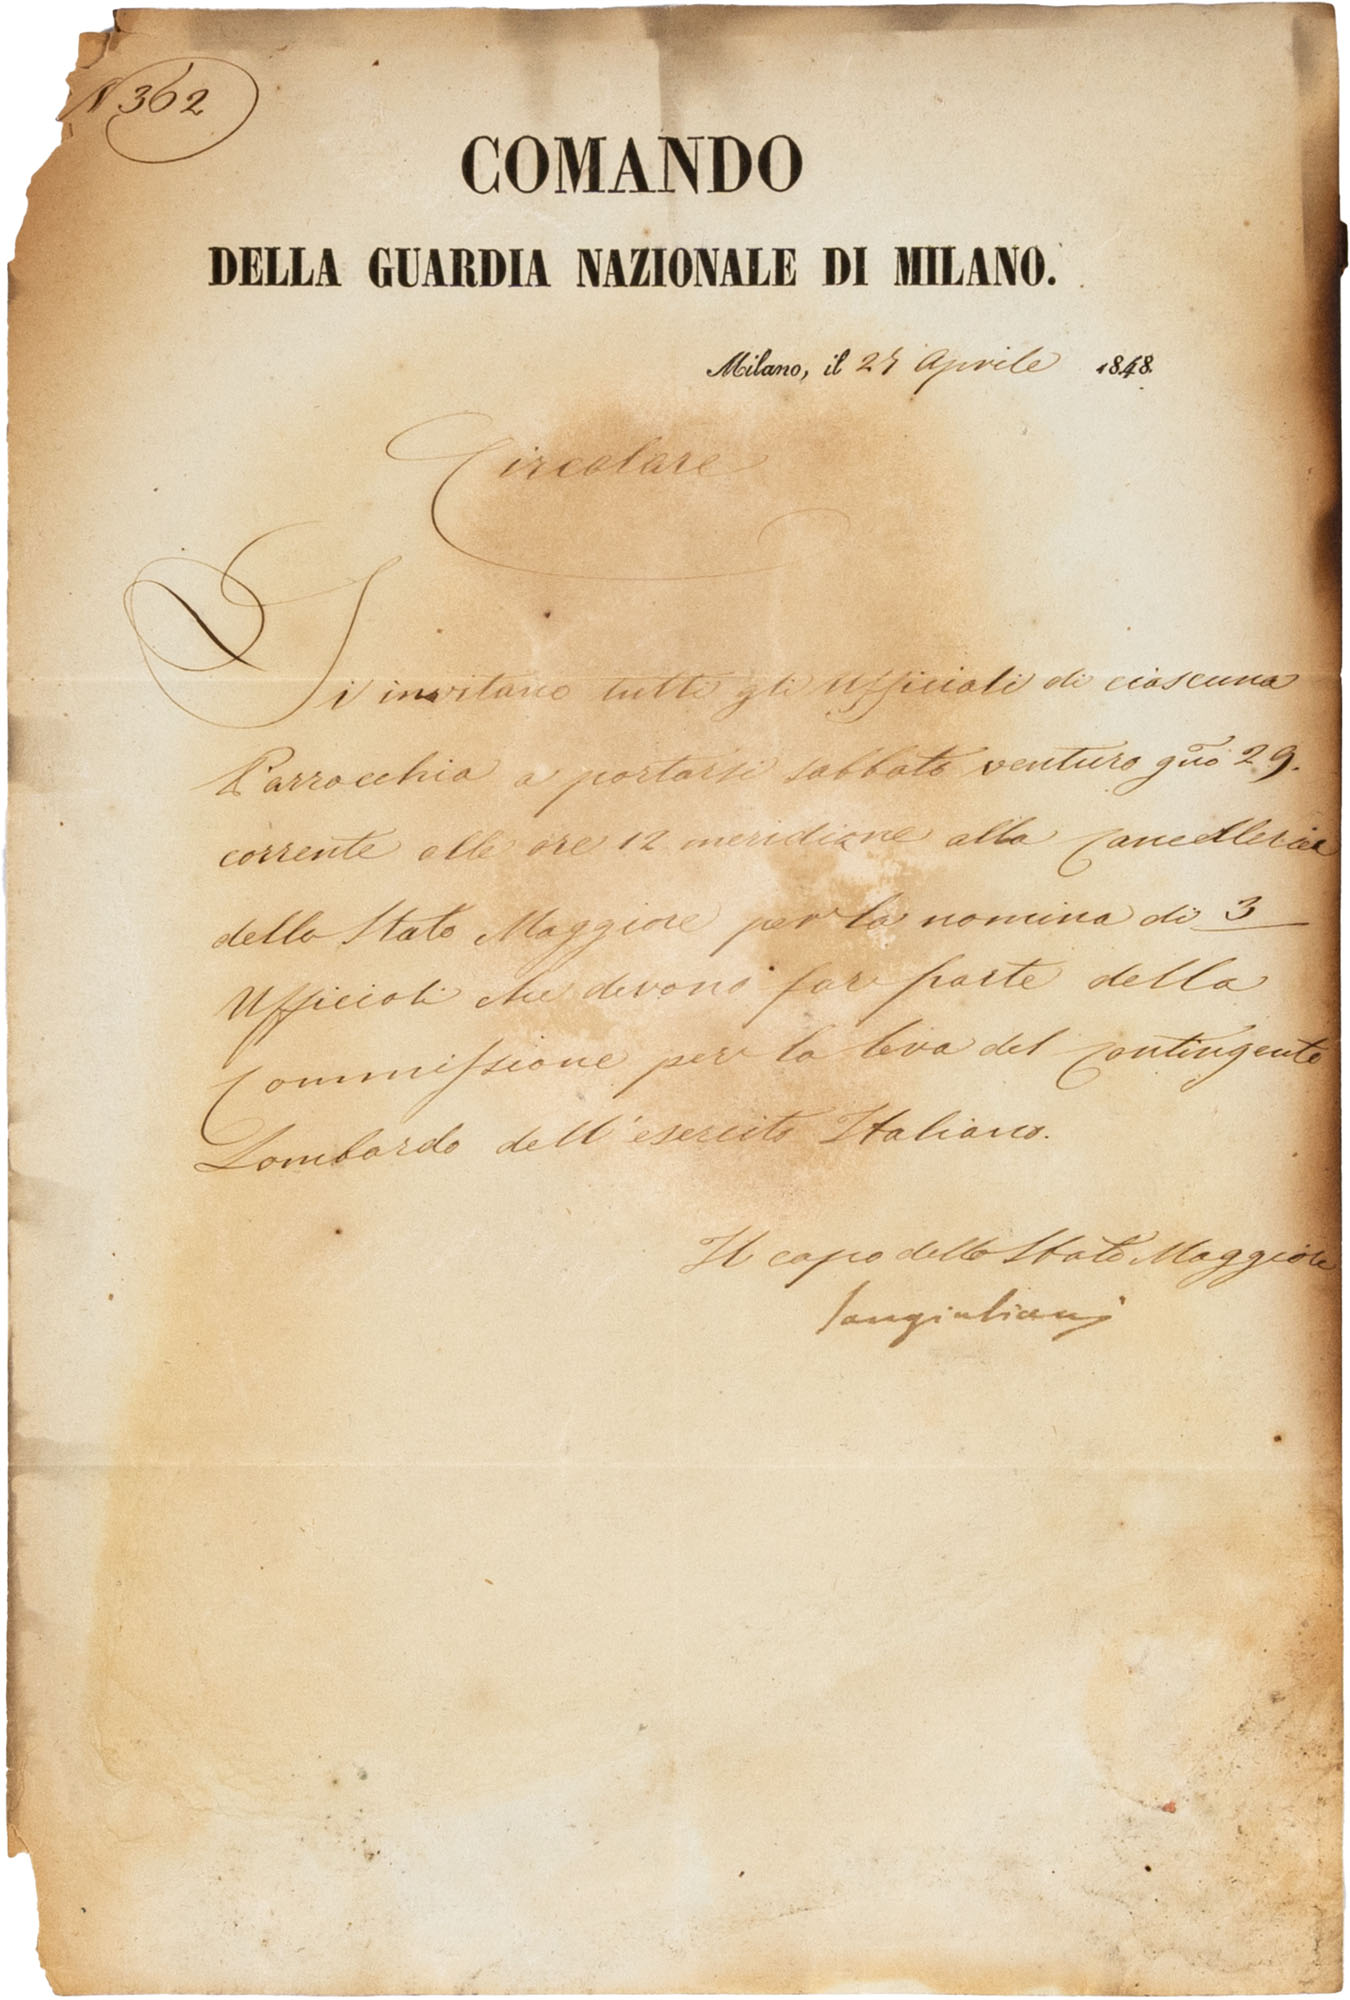 N 362
COMANDO
DELLA GUARDIA NAZIONALE DI MILANO.
Milano, il 27 Aprile 1848.
Circolare
Si invitano tutti gli Ufficiali di ciascuna
Parrocchia a portarsi sabbato venturo gno 29.
corrente alle ore 12 meridiane alla Cancelleria
dello Stato Maggiore per la nomina di 3
Ufficiali che devono far parte della
Commissione per la leva del Contingente
Lombardo dell'esercito Italiano.
Il capo dello Stato Maggiore
Sangiuliani